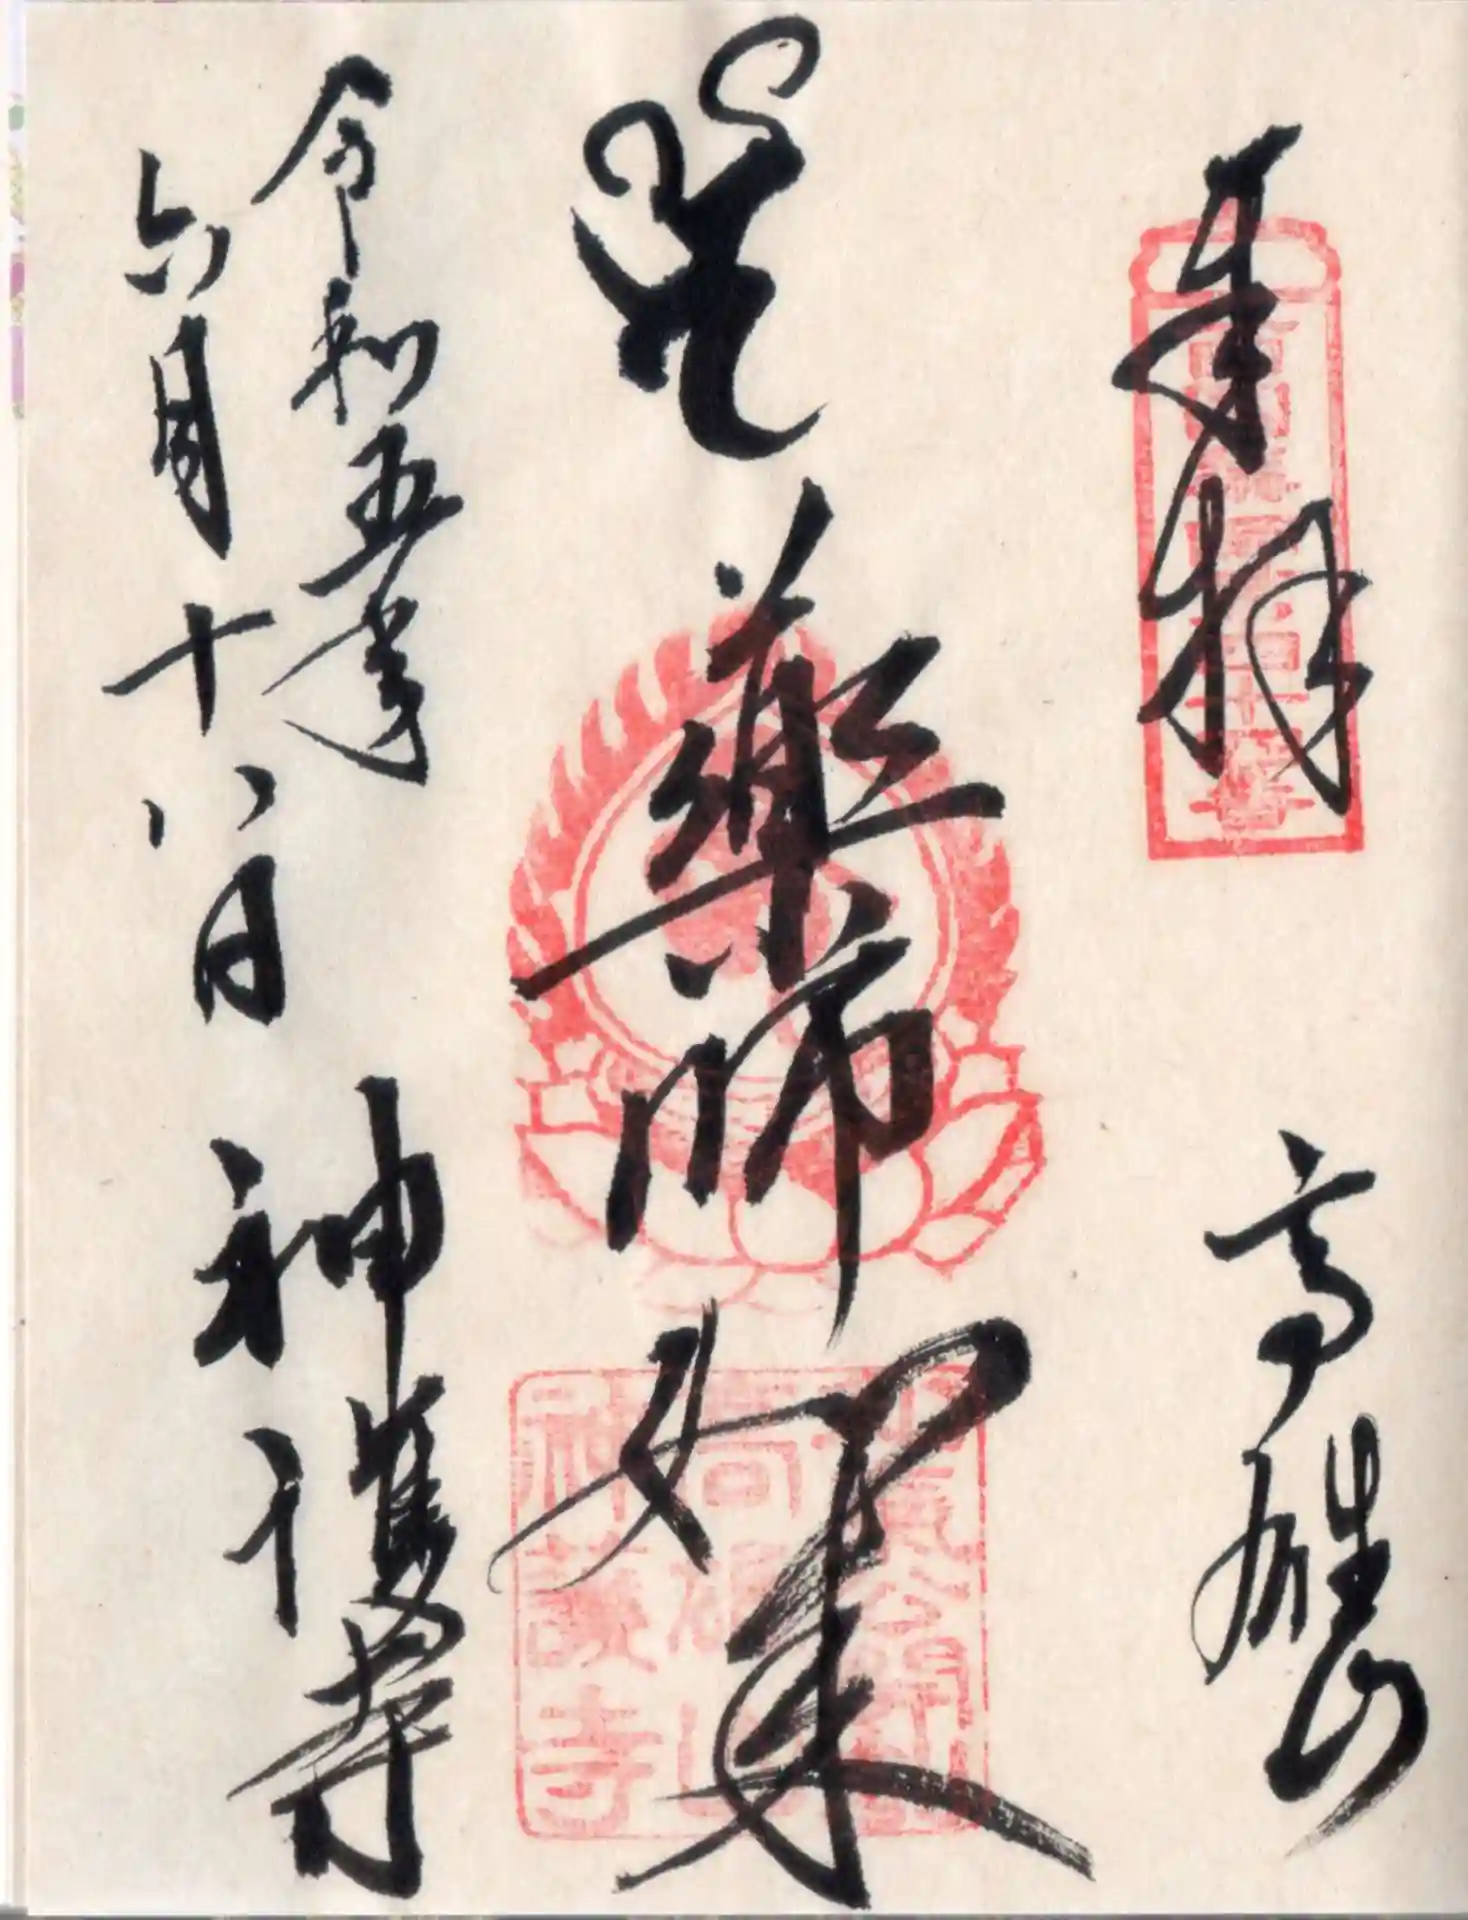 奉拝
高雄山
薬師如来
令和五年
六月十八日
神護寺
高雄山
神護寺